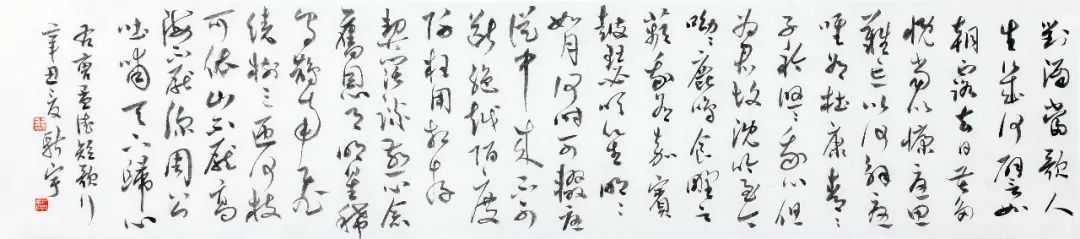 對酒當歌人
生幾何譬如
朝露去日苦多
慨當以慷憂思
難忘以何解憂
唯有杜康青〻
子衿悠〻我心但
為君故沈吟至今
呦〻鹿鳴食野之
蘋我有嘉賓
鼓瑟吹笙明〻
如月何時可輟憂
從中來不可
斷絕越陌度
阡枉用相存
契闊談讌心念
舊恩月明星稀
烏鵲南飛
繞樹三匝何枝
可依山不厭高
海不厭深周公
吐哺天下歸心
右曹孟德短歌行
辛丑夏